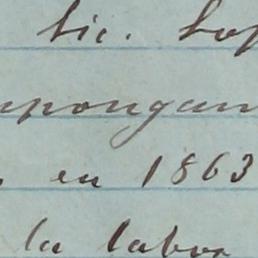 lic. Lop
upongan
en 1863
la labor